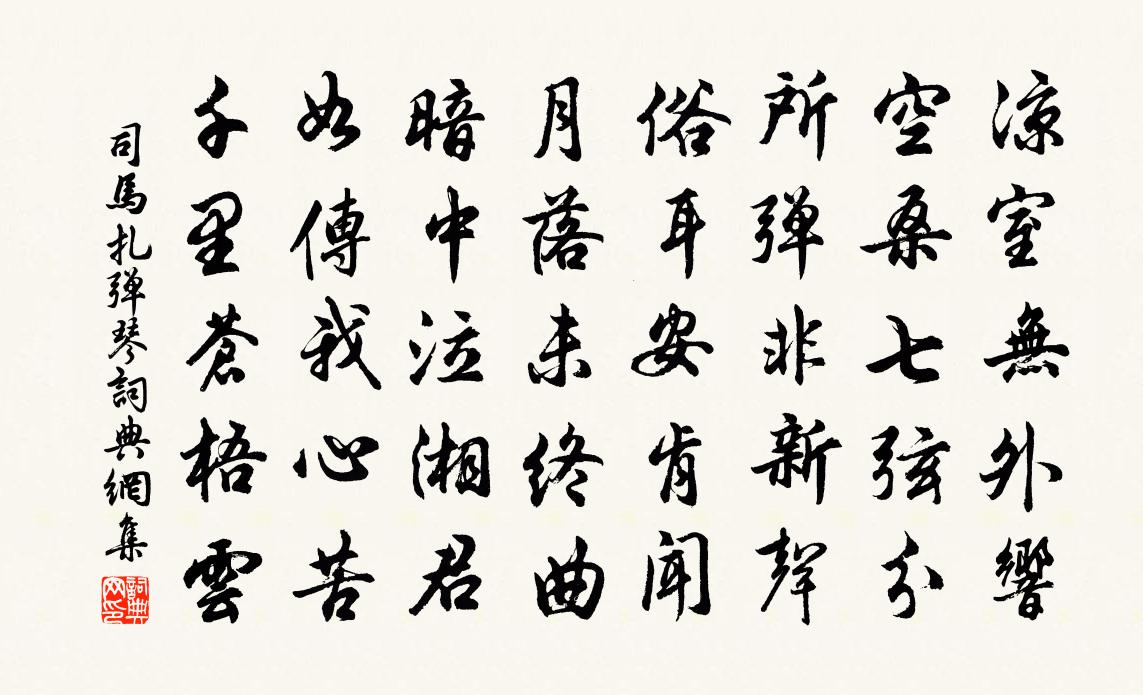 凉室無外響
空桑七弦分
所弹非新聲
俗耳安肯聞
月落未终曲
暗中泣湘君
如傳我心苦
千里蒼梧雲
司馬扎弹琴詞典網集
詞典网印